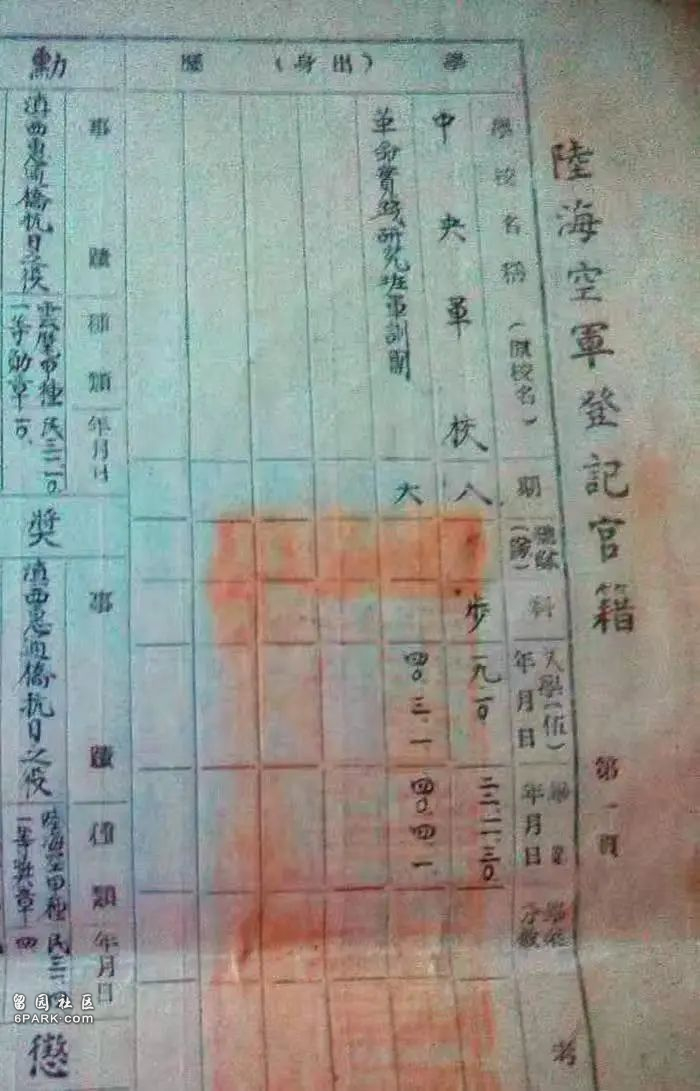 陸海空軍登記官籍
第一頁
學(出身)歷
學校名稱(原校名)
期
科
入學(伍)年月日
畢業年月日
學能分數
考
中央軍校
八
步
一九.一.一〇
二二.一一.三〇
革命實踐研究班軍訓團
六
四〇.三.一
四〇.四.一
勳
事蹟
種類
年月日
滇西惠通橋抗日之役
雲麾古種一等勳章
民三二.一〇.一〇.
獎
事蹟
種類
年月日
滇西惠通橋抗日之役
陸海空甲種一等獎章
懲
留园社区
6PARK.COM